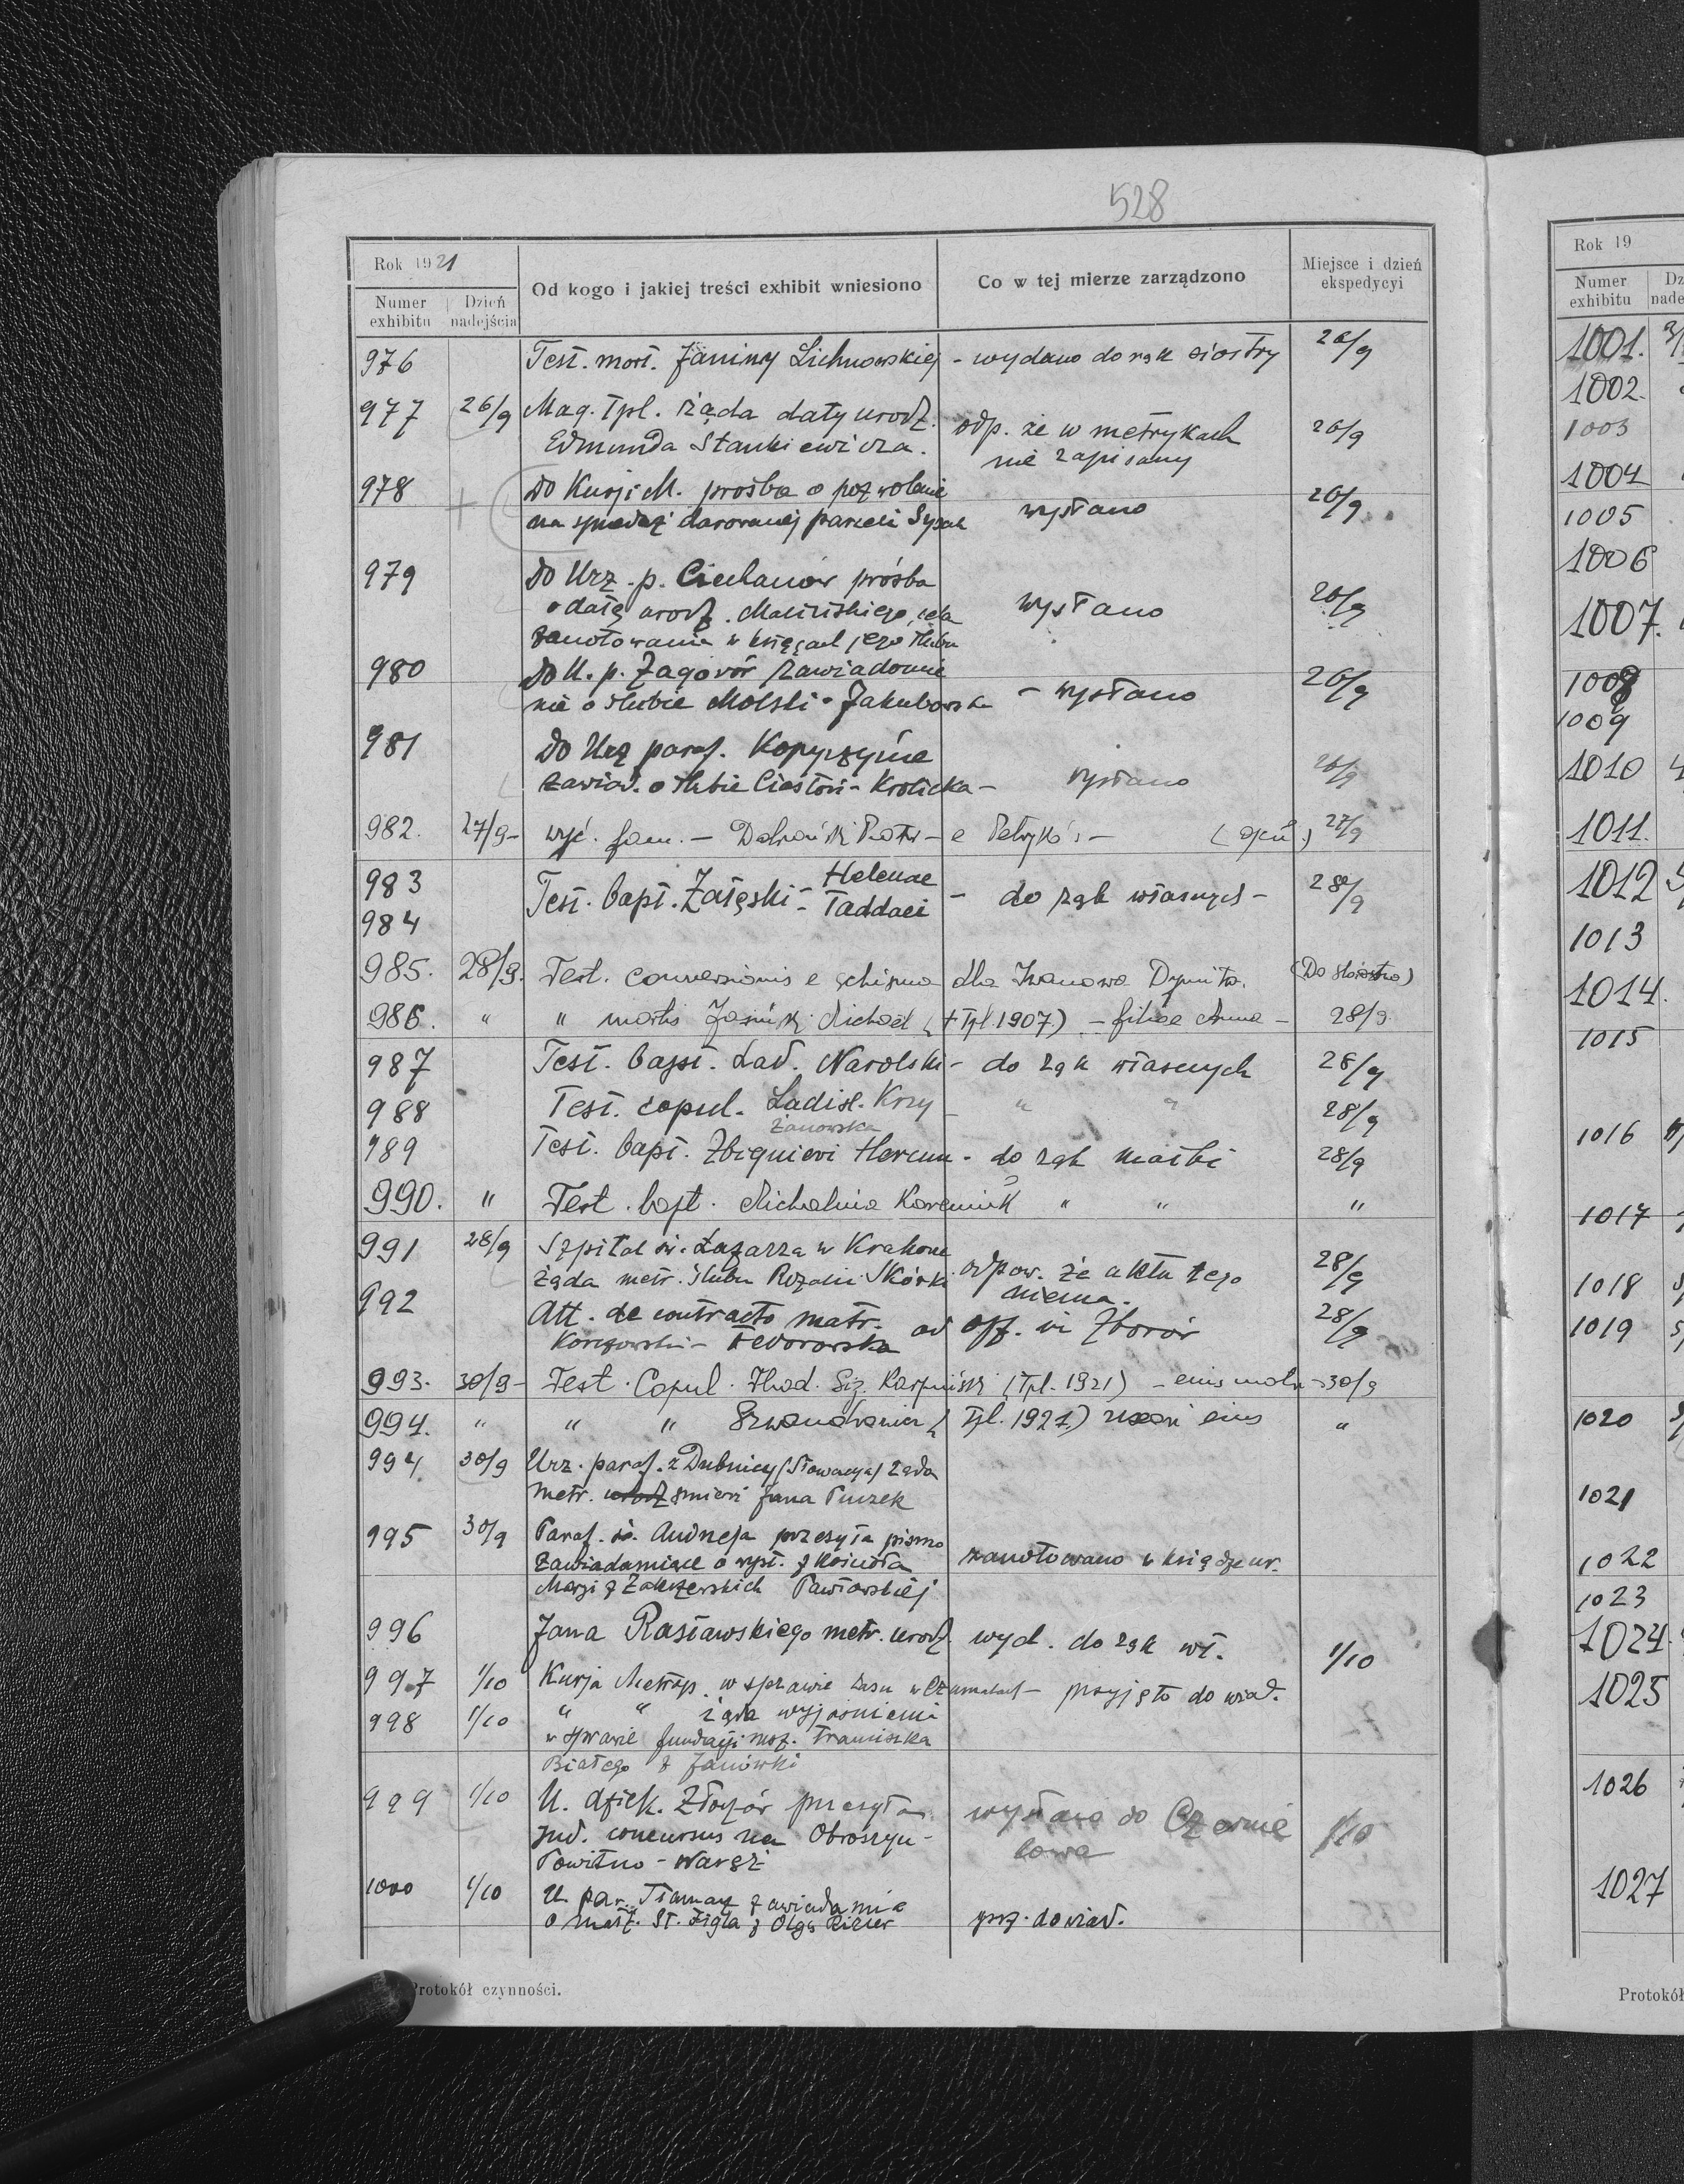 528
Rok 1921
Numer exhibitu
Dzień nadejścia
Od kogo i jakiej treści exhibit wniesiono
Co w tej mierze zarządzono
Miejsce i dzień ekspedycyi
976 Test. mort. Janiny Lichnowskiej - wydano do rąk siostry 26/9
977 26/9 Mag. Tpl. żąda daty urodz.
Edmunda Stankiewicza.
odp. że w metrykach
nie zapisany
26/9
978 Do Kurji M. prośba o pozwolenie
na sprzedaż darowanej parceli
wysłano 26/9
979 Do Urz. p. Ciechanów prośba
o datę urodz. cela
zanotowania w księgach jego ślubu
wysłano 26/9
980 Do U. p. Zagórór zawiadomie
nie o ślubie Molski - Jakubowska - wysłano 26/9
981 Do Urz paraf. Kopyczyńce
zawiad. o ślubie Ciastoń - Krolicka - wysłano 26/9
982. 27/9 - wyć. fam. - 27/9
983 Test. bapt. Załęski - Helenae - do rąk własnych - 28/9
984 Taddaei
985. 28/9. Test. conversionis e schisma dla Iwanowa Dymitr. (Do Starostwa)
986. " " mortis Jasiński Michael († Tpl. 1907.) - filiae Anna - 28/9.
987 Test. bapt. Lad. Narolski - do rąk własnych 28/9
988 Test. copul. Ladisl. Krzy - " " 28/9
żanowska
989 Test. bapt. Zbignievi Hercun - do rąk matki 28/9
990. " Test. bapt. Michalina " " "
991 28/9 Szpital św. Łazarza w Krakowie
żąda metr. ślubu Rozalii Skórki
odpow. że aktu tego
niema.
28/9
992 Att. de contracto matr. ad off. in Zborów 28/9
Fedorowska
993. 30/9 - Test. Copul. Thad. Siz. Karpiński (Tpl. 1921) - eius - 30/9
994. " " " (Tpl. 1921.) uxori eius "
994 30/9 Urz. paraf. z Dubnicy (Słowacya) żąda
metr. śmierci Jana
995 30/9 Paraf. św. Andrzeja przesyła pismo
zawiadamiające o wyst. z kościoła
Marji z Zakrzewskich Pawłowskiej
zanotowano w księdze ur.
996 Jana Rasławskiego metr. urodz. wyd. do rąk wł. 1/10
997 1/10 Kurja Metrop. w sprawie - przyjęto do wiad.
998 1/10 " " żąda wyjaśnienia
w sprawie fundacji msz. Franciszka
Białego z Janówki
999 1/10 U. dziek. przesyła
Ind. concursus na Obroszyn -
Powitno - Waręż
wysłano do Czernie
lowa
1/10
1000 1/10 U. par. Tłumacz zawiadamia
o małż. St. Zigla z Olgą
prz. do wiad.
Protokół czynności.
Rok 19
Numer exhibitu
1001.
1002.
1003
1004
1005
1006
1007.
1008
1009
1010
1011.
1012
1013
1014.
1015
1016
1017
1018
1019
1020
1021
1022
1023
1024.
1025
1026
1027
Protokół